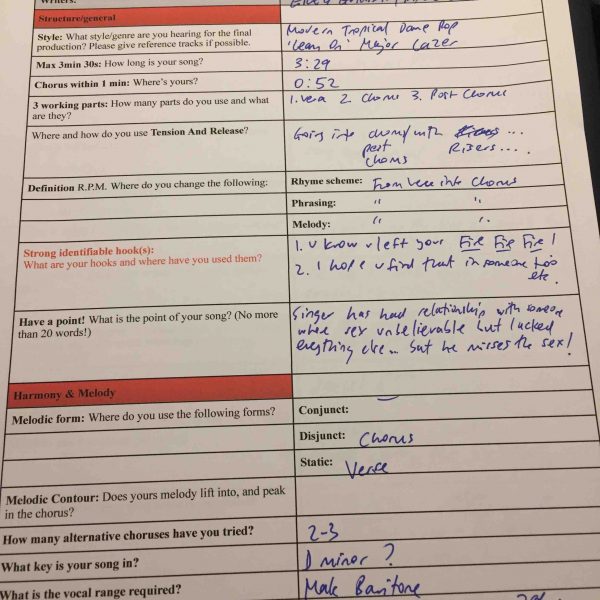 Writers:
Structure/general
Style: What style/genre are you hearing for the final
production? Please give reference tracks if possible.
Modern Tropical Dance Pop
'Lean On' Major Lazer
Max 3min 30s: How long is your song?
3:29
Chorus within 1 min: Where's yours?
0:52
3 working parts: How many parts do you use and what
are they?
1. Verse 2. Chorus 3. Post Chorus
Where and how do you use Tension And Release?
Going into chorus with ...
post Risers ....
chorus
Definition R.P.M. Where do you change the following:
Rhyme scheme: From Verse into Chorus
Phrasing: " "
Melody: " "
Strong identifiable hook(s):
What are your hooks and where have you used them?
1. u know u left your Fire Fire Fire!
2. I hope u find that in someone too
etc.
Have a point! What is the point of your song? (No more
than 20 words!)
Singer has had relationship with someone
where sex unbelievable but lacked
everything else... but he misses the sex!
Harmony & Melody
Melodic form: Where do you use the following forms?
Conjunct:
Disjunct: Chorus
Static: Verse
Melodic Contour: Does yours melody lift into, and peak
in the chorus?
How many alternative choruses have you tried?
2-3
What key is your song in?
D minor?
What is the vocal range required?
Male Baritone